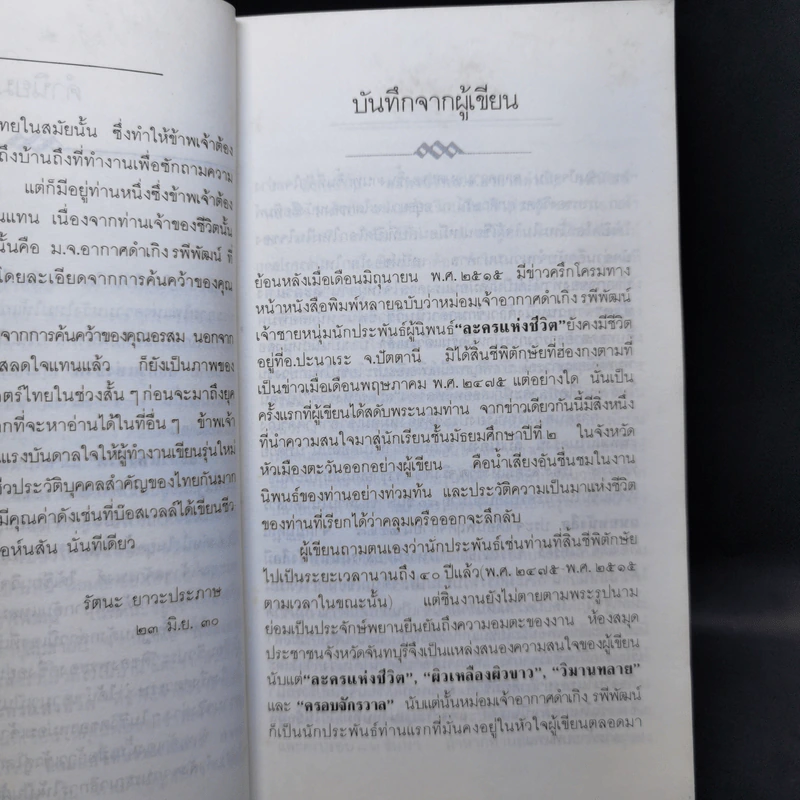 ทยในสมัยนั้น ซึ่งทำให้ข้าพเจ้าต้อง
ถึงบ้านถึงที่ทำงานเพื่อซักถามความ
แต่ก็มีอยู่ท่านหนึ่งซึ่งข้าพเจ้าต้อง
นแทน เนื่องจากท่านเจ้าของชีวิตนั้น
นั้นคือ ม.จ.อากาศดำเกิง รพีพัฒน์ ที่
โดยละเอียดจากการค้นคว้าของคุณ
จากการค้นคว้าของคุณอรสม นอกจาก
สลดใจแทนแล้ว ก็ยังเป็นภาพของ
ตร์ไทยในช่วงสั้น ๆ ก่อนจะมาถึงยุค
กที่จะหาอ่านได้ในที่อื่น ๆ ข้าพเจ้า
แรงบันดาลใจให้ผู้ทำงานเขียนรุ่นใหม่
ชีวประวัติบุคคลสำคัญของไทยกันมาก
มีคุณค่าดังเช่นที่บ๊อสเวลล์ได้เขียนชีว
อห์นสัน นั่นทีเดียว
รัตนะ ยาวะประภาษ
๒๓ มิ.ย. ๓๐
บันทึกจากผู้เขียน
ย้อนหลังเมื่อเดือนมิถุนายน พ.ศ.๒๕๑๕ มีข่าวครึกโครมทาง
หน้าหนังสือพิมพ์หลายฉบับว่าหม่อมเจ้าอากาศดำเกิง รพีพัฒน์
เจ้าชายหนุ่มนักประพันธ์ผู้นิพนธ์ “ละครแห่งชีวิต” ยังคงมีชีวิต
อยู่ที่อ.ปะนาเระ จ.ปัตตานี มิได้สิ้นชีพิตักษัยที่ฮ่องกงตามที่
เป็นข่าวเมื่อเดือนพฤษภาคม พ.ศ.๒๔๗๕ แต่อย่างใด นั่นเป็น
ครั้งแรกที่ผู้เขียนได้สดับพระนามท่าน จากข่าวเดียวกันนี้มีสิ่งหนึ่ง
ที่นำความสนใจมาสู่นักเรียนชั้นมัธยมศึกษาปีที่ ๒ ในจังหวัด
หัวเมืองตะวันออกอย่างผู้เขียน คือน้ำเสียงอันชื่นชมในงาน
นิพนธ์ของท่านอย่างท่วมท้น และประวัติความเป็นมาแห่งชีวิต
ของท่านที่เรียกได้ว่าคลุมเครือออกจะลึกลับ
ผู้เขียนถามตนเองว่านักประพันธ์เช่นท่านที่สิ้นชีพิตักษัย
ไปเป็นระยะเวลานานถึง ๔๐ ปีแล้ว(พ.ศ.๒๔๗๕-พ.ศ.๒๕๑๕
ตามเวลาในขณะนั้น) แต่ชิ้นงานยังไม่ตายตามพระรูปนาม
ย่อมเป็นประจักษ์พยานยืนยันถึงความอมตะของงาน ห้องสมุด
ประชาชนจังหวัดจันทบุรีจึงเป็นแหล่งสนองความสนใจของผู้เขียน
นับแต่ “ละครแห่งชีวิต”, “ผิวเหลืองผิวขาว”, “วิมานทลาย”
และ “ครอบจักรวาล” นับแต่นั้นหม่อมเจ้าอากาศดำเกิง รพีพัฒน์
ก็เป็นนักประพันธ์ท่านแรกที่มั่นคงอยู่ในหัวใจผู้เขียนตลอดมา